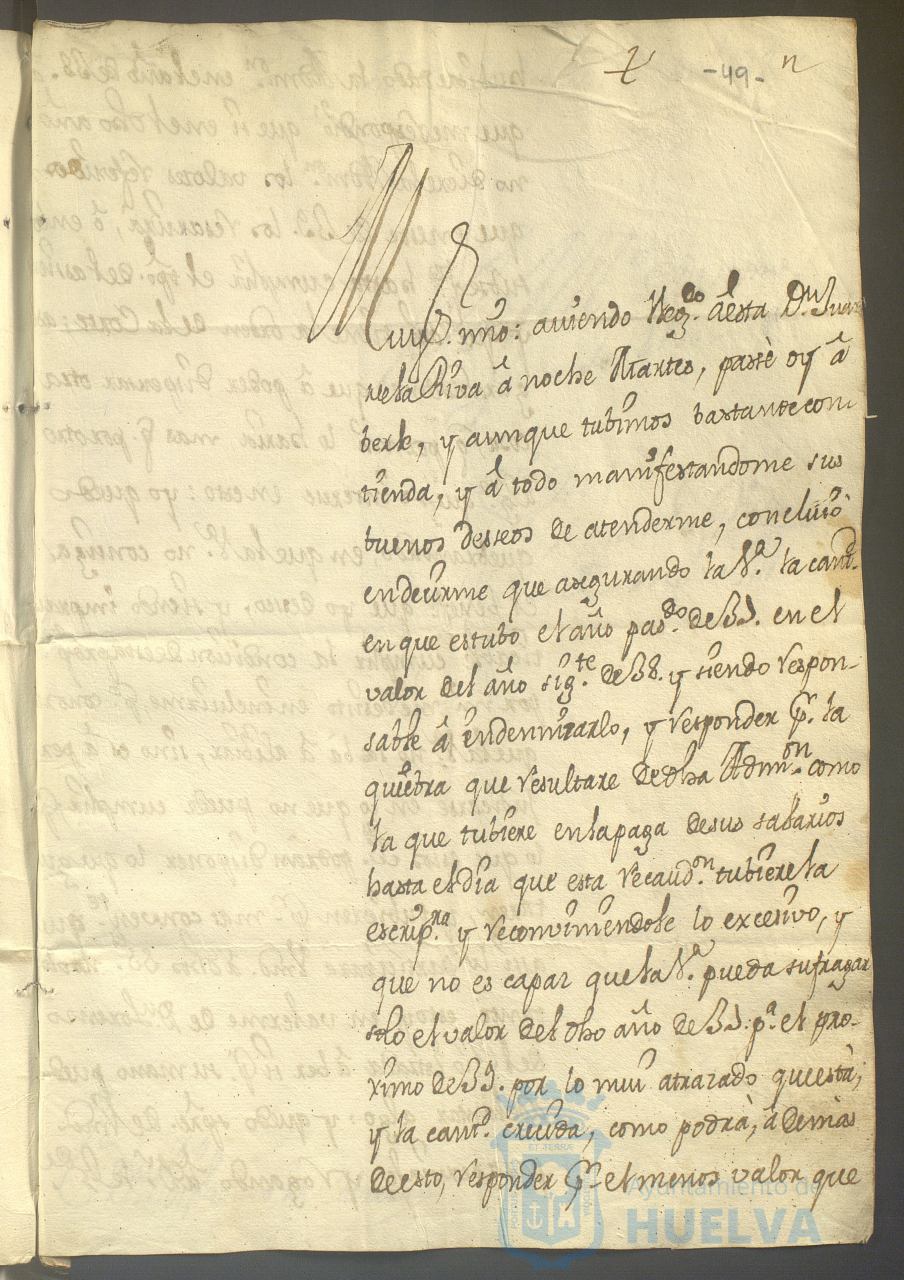 -49-
Muy S.r mío: aviendo lleg.do á ésta D.n Juan
de la Riva á noche Martes, pasè oy â
berle, y aunque tubimos bastante con-
tienda, y â todo manifestandome sus
buenos deseos de atenderme, concluiò
en decirme que asegurando la V.a la cant.d
en que estubo el año pas.do de 57. en el
valor del año sig.te de 58. y siendo respon-
sable â endemnizarlo, y responder p.r la
quiebra que resultare de dha Admn.on como
la que tubiere en la paga de sus salarios
hasta el dia que esta recaud.on tubiere la
escrip.ra y reconviniendole lo excesivo, y
que no es capaz que la V.a pueda sufragar
solo el valor del dho año de 57. p.a el pro-
ximo de 59. por lo mui atrazado que està,
y la cant.d crecida, como podrà, âdemas
de esto, responder p.r el menos valor que
ET TERRÆ
Ayuntamiento de
HUELVA